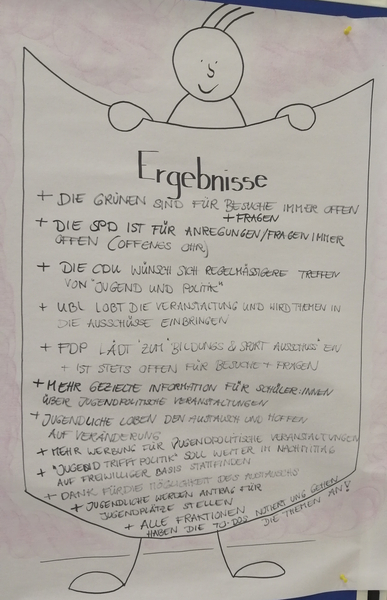 Ergebnisse
+ DIE GRÜNEN SIND FÜR BESUCHE IMMER OFFEN
+ FRAGEN
+ DIE SPD IST FÜR ANREGUNGEN/FRAGEN IMMER
OFFEN (OFFENES OHR)
+ DIE CDU WÜNSCH SICH REGELMÄSSIGERE TREFFEN
VON "JUGEND UND POLITIK"
+ UBL LOBT DIE VERANSTALTUNG UND WIRD THEMEN IN
DIE AUSSCHÜSSE EINBRINGEN
+ FDP LÄDT ZUM "BILDUNGS & SPORT AUSSCHUSS" EIN
+ IST STETS OFFEN FÜR BESUCHE + FRAGEN
+ MEHR GEZIELTE INFORMATION FÜR SCHÜLER:INNEN
ÜBER JUGENDPOLITISCHE VERANSTALTUNGEN
+ JUGENDLICHE LOBEN DEN AUSTAUSCH UND HOFFEN
AUF VERÄNDERUNG
+ MEHR WERBUNG FÜR JUGENDPOLITISCHE VERANSTALTUNGEN
+ "JUGEND TRIFFT POLITIK" SOLL WEITER IM NACHMITTAG
AUF FREIWILLIGER BASIS STATTFINDEN
+ DANK FÜR DIE MÖGLICHKEIT DES AUSTAUSCHS
+ JUGENDLICHE WERDEN ANTRAG FÜR
JUGENDPLÄTZE STELLEN
+ ALLE FRAKTIONEN NOTIERT UNG GEHEN
HABEN DIE TO-DOS DIE THEMEN AN!